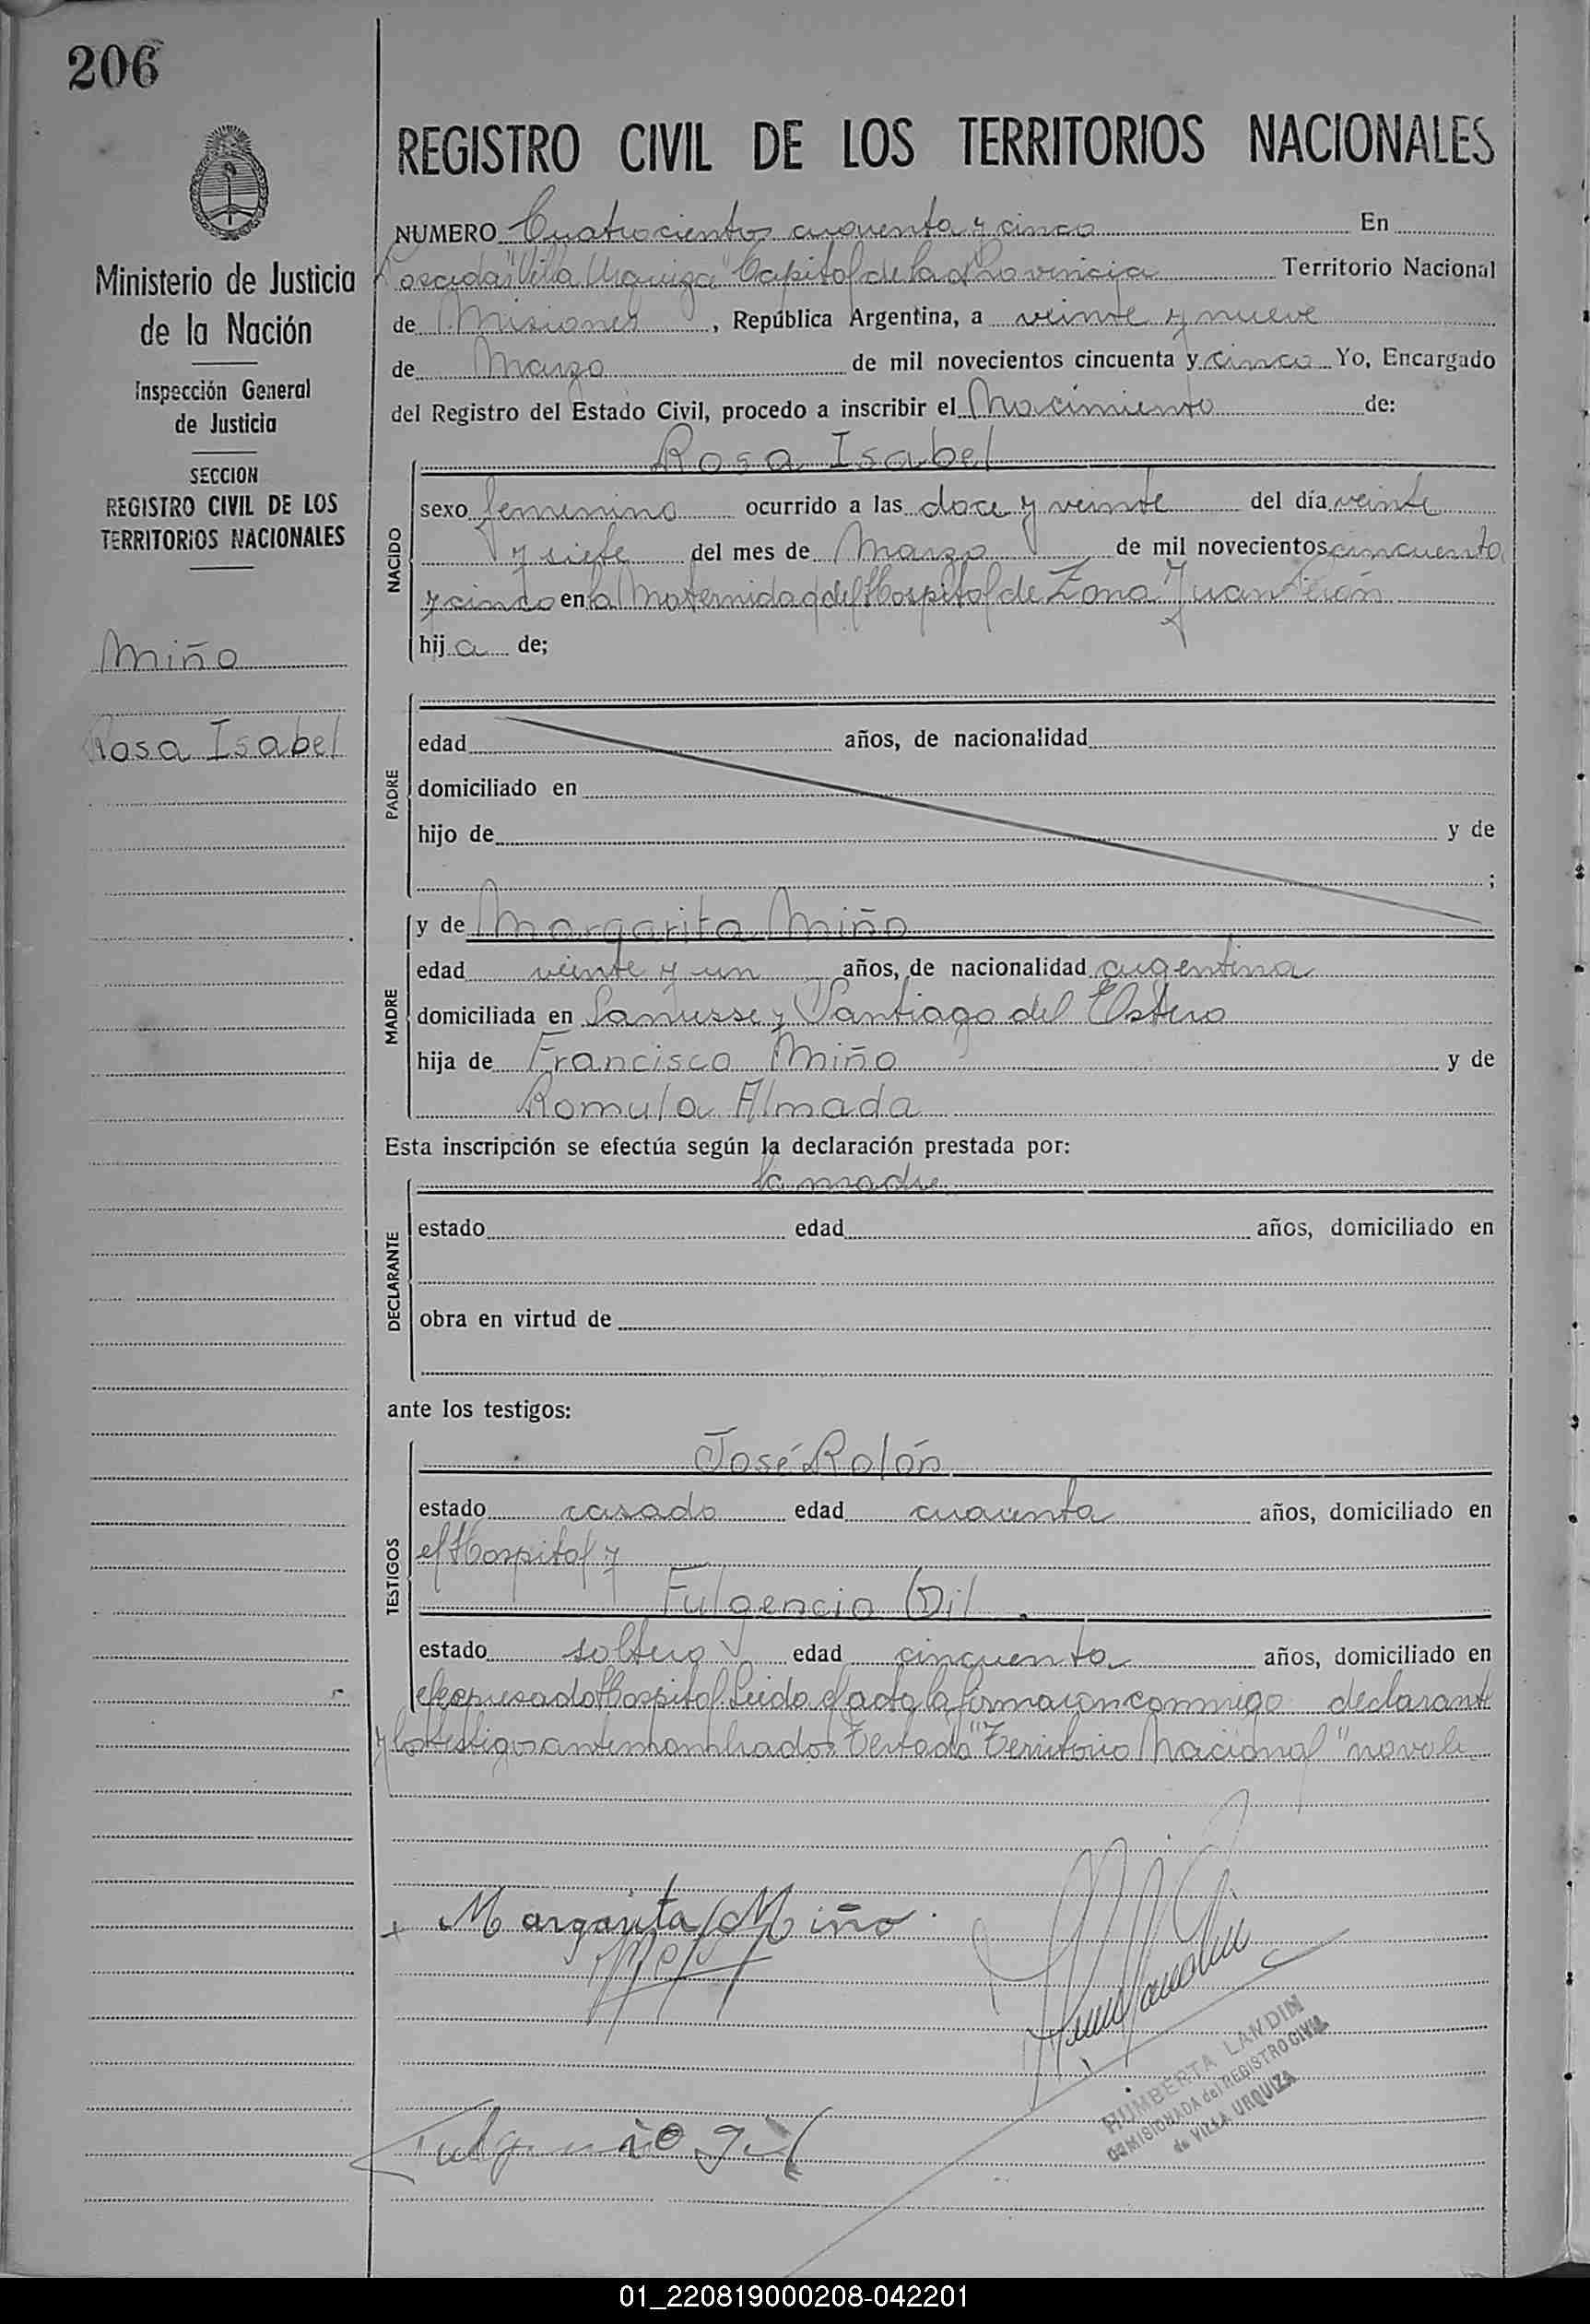 206
Ministerio de Justicia
de la Nación
Inspección General
de Justicia
SECCION
REGISTRO CIVIL DE LOS
TERRITORIOS NACIONALES
Miño
Rosa Isabel
REGISTRO CIVIL DE LOS TERRITORIOS NACIONALES
NUMERO Cuatrocientos cincuenta y cinco En
Posadas "Villa Urquiza" Capital de la Provincia Territorio Nacional
de Misiones, República Argentina, a veinte y nueve
de Marzo de mil novecientos cincuenta y cinco Yo, Encargado
del Registro del Estado Civil, procedo a inscribir el Nacimiento de:
Rosa Isabel
NACIDO
sexo femenino ocurrido a las doce y veinte del día veinte
y siete del mes de Marzo de mil novecientos cincuenta
y cinco en la Maternidad del Hospital de Zona "Juan Perón
hija de;
PADRE
edad años, de nacionalidad
domiciliado en
hijo de y de
;
MADRE
y de Margarita Miño
edad veinte y un años, de nacionalidad argentina
domiciliada en Lanusse y Santiago del Estero
hija de Francisco Miño y de
Romula Almada
Esta inscripción se efectúa según la declaración prestada por:
la madre
DECLARANTE
estado edad años, domiciliado en
obra en virtud de
ante los testigos:
TESTIGOS
José Rolón
estado casado edad cuarenta años, domiciliado en
el Hospital y
Fulgencio Gil
estado soltero edad cincuenta años, domiciliado en
el expresado Hospital. Leido el acta la firmaron conmigo declarante
y los testigos antenombrados Testado "Territorio Nacional" no vale
Margarita Miño
Fulgencio gil
HUMBERTA LANDIN
COMISIONADA del REGISTRO CIVIL
de VILLA URQUIZA
01_220819000208-042201